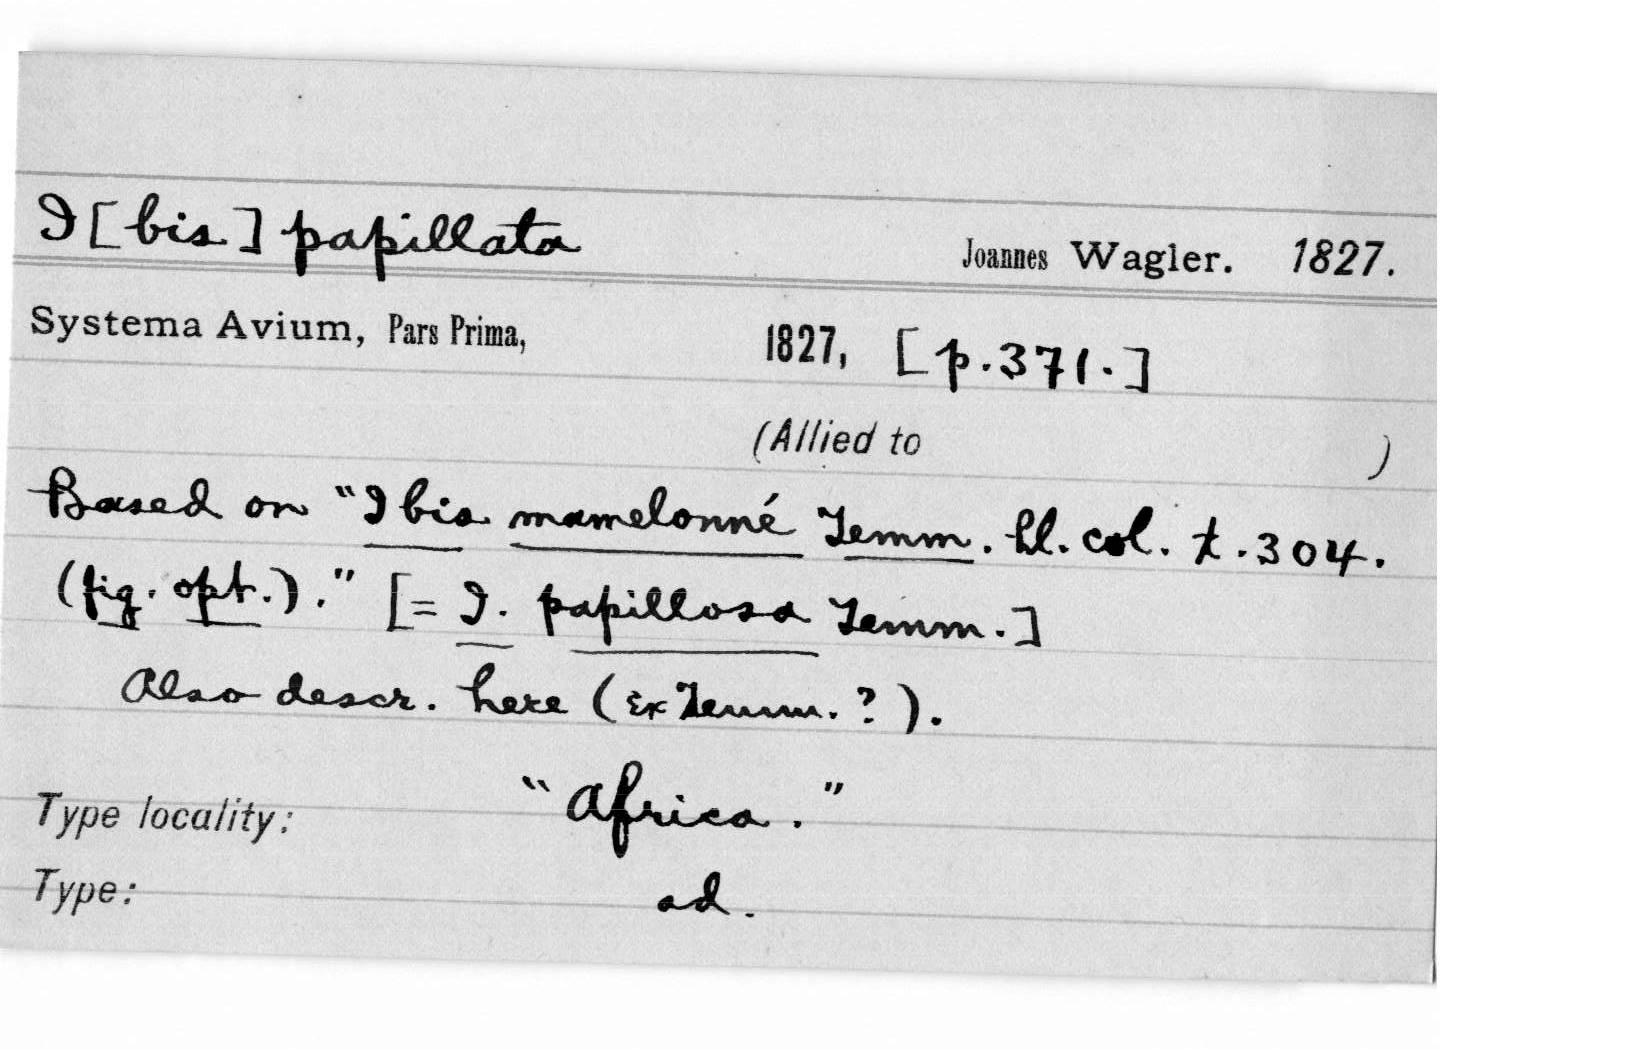 I[bis] papillata Joannes Wagler. 1827.
Systema Avium, Pars Prima, 1827, [p.371.]
(Allied to )
Based on "Ibis mamelonné Temm. Pl. col. t.304.
(fig. opt.)." [= I. papillosa Temm.]
Also descr. here (Ex Temm.?).
Type locality: "Africa."
Type: ad.